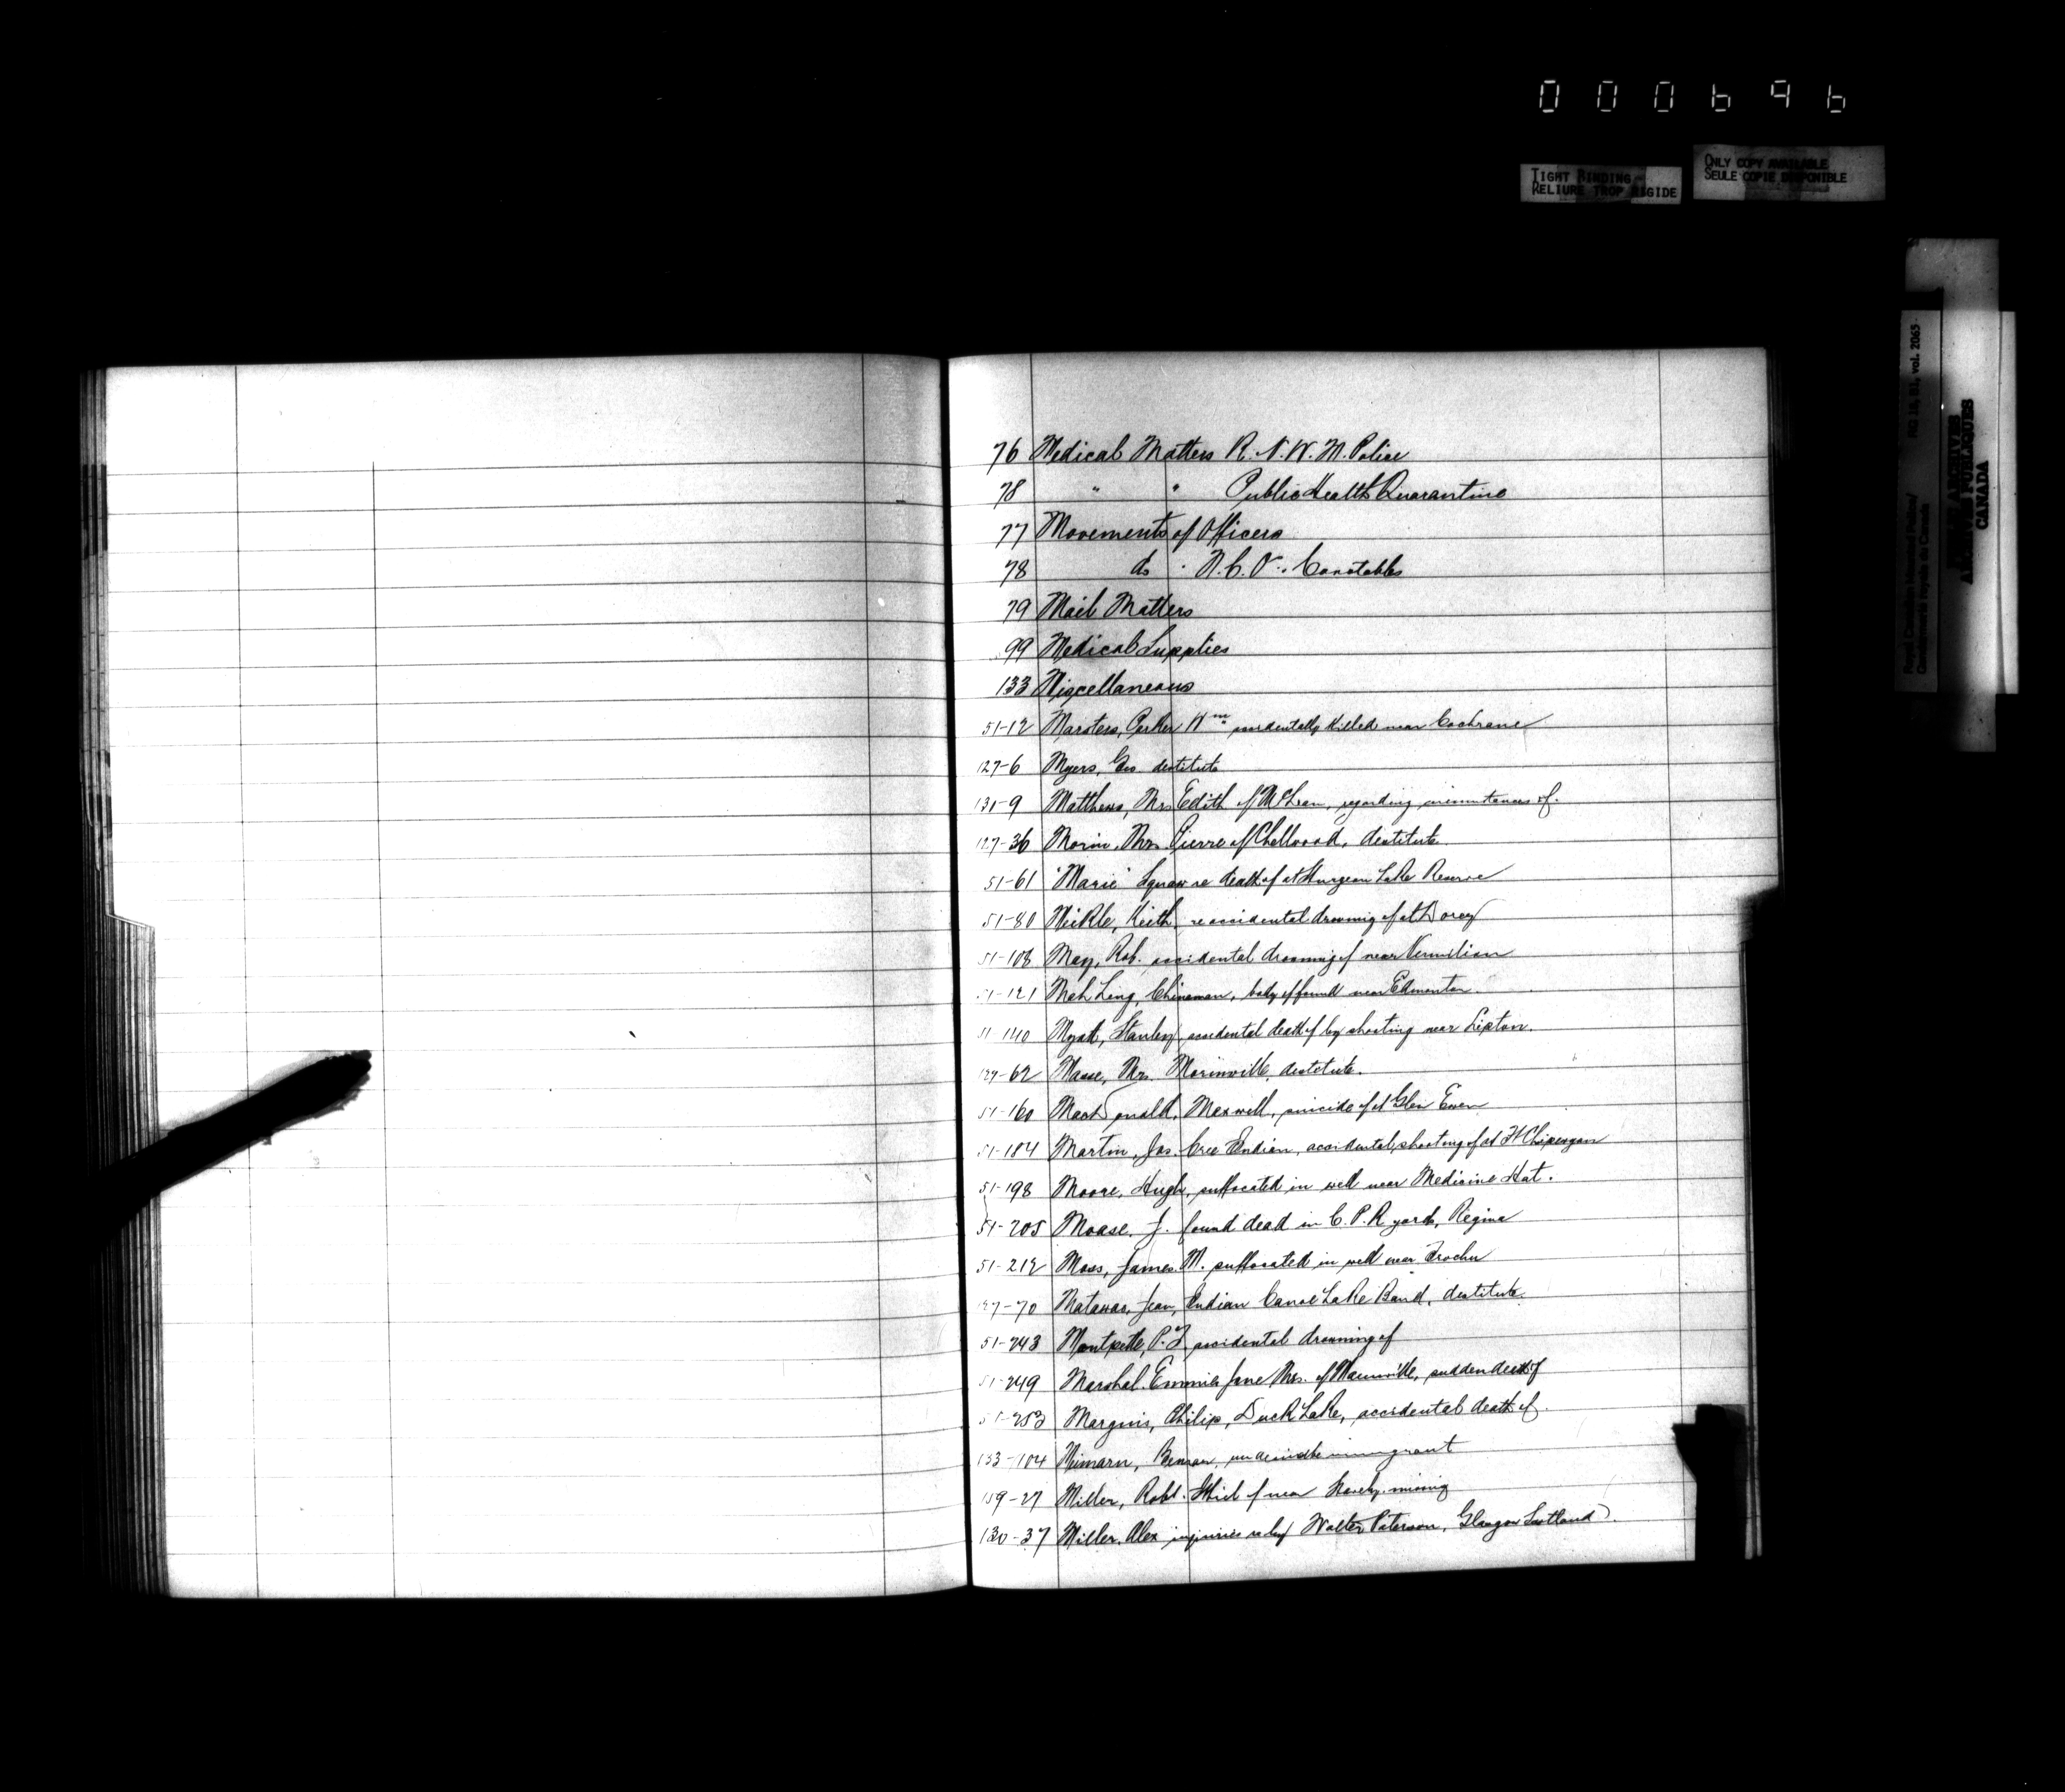 000696
TIGHT BINDING
RELIURE TROP RIGIDE
ONLY COPY AVAILABLE
SEULE COPIE DISPONIBLE
Royal Canadian Mounted Police/
Gendarmerie royale du Canada
RG 18, B1, vol. 2065
PUBLIC ARCHIVES
ARCHIVES PUBLIQUES
CANADA
76 Medical Matters R. N. W. M. Police
78 " " Public Health & Quarantine
77 Movements of Officers
78 do . N. C. O. . Constables
79 Mail Matters
99 Medical Supplies
133 Miscellaneous
51-12 Marsters, Parker Wm accidentally killed near Cochrane
127-6 Myers, Geo. destitute
130-9 Matthews, Mrs Edith of McLean, regarding circumstances of.
127-36 Morin, Mrs. Pierre of Chellwood, destitute.
51-61 "Marie" Squaw re death of at Sturgeon Lake Reserve
51-80 Meikle, Keith, re accidental drowning of at
51-108 May, Rob. accidental drowning of near Vermilion
51-121 Mah Ling, Chinaman, body of found near Edmonton.
51-140 Myatt, Stanley, accidental death of by shooting near Lipton.
127-62 Masse, Mrs. Morinville, destitute.
51-160 MacDonald, Maxwell, suicide of at Glen Ewen
51-184 Martin, Jas. Cree Indian, accidental shooting of at Ft Chipewyan
51-198 Moore, Hugh, suffocated in well near Medicine Hat.
51-205 Moase, J. found dead in C. P. R yard, Regina
51-212 Moss, James M. suffocated in well near Trochu
127-70 Matawas, Jean, Indian Canoe Lake Band, destitute.
51-243 Montpetite, P. J accidental drowning of
51-249 Marshal. Emmie Jane Mrs. of Mannville, sudden death of
51-253 Marquis, Philip, Duck Lake, accidental death of.
133-104 Benson, undesirable immigrant
159-27 Miller, Robt. of near missing
130-37 Miller, Alex injuries re by Walter Paterson, Glasgow Scotland).